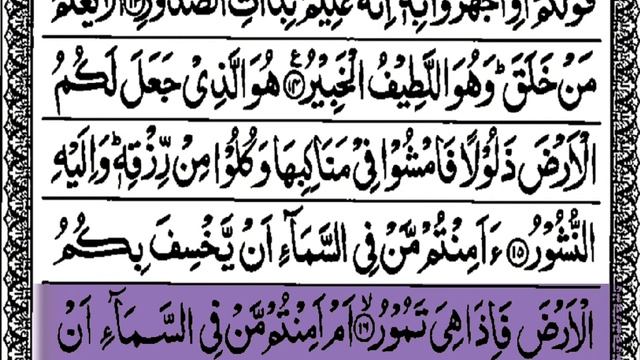 قَوْلَكُمْ اَوِ اجْهَرُوْا بِهٖ ؕ اِنَّهٗ عَلِيْمٌۢ بِذَاتِ الصُّدُوْرِ ﴿۱۳﴾ اَلَا يَعْلَمُ
مَنْ خَلَقَ ؕ وَهُوَ اللَّطِيْفُ الْخَبِيْرُ ﴿۱۴﴾ ع هُوَ الَّذِيْ جَعَلَ لَكُمُ
الْاَرْضَ ذَلُوْلًا فَامْشُوْا فِيْ مَنَاكِبِهَا وَكُلُوْا مِنْ رِّزْقِهٖ ؕ وَاِلَيْهِ
النُّشُوْرُ ﴿۱۵﴾ ءَاَمِنْتُمْ مَّنْ فِي السَّمَآءِ اَنْ يَّخْسِفَ بِكُمُ
الْاَرْضَ فَاِذَا هِيَ تَمُوْرُ ﴿۱۶﴾ ۙ اَمْ اَمِنْتُمْ مَّنْ فِي السَّمَآءِ اَنْ